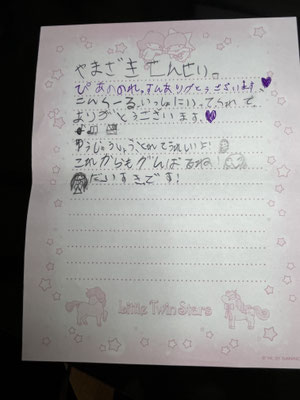 やまざきせんせい。
ぴあののれっすんありがとうございます
こんくーるいっしょにいってくれて
ありがとうございます。
ゆうしょうしょう、くれてうれしいよ!
これからもがんばるね!
だいすきです!
Little Twin Stars